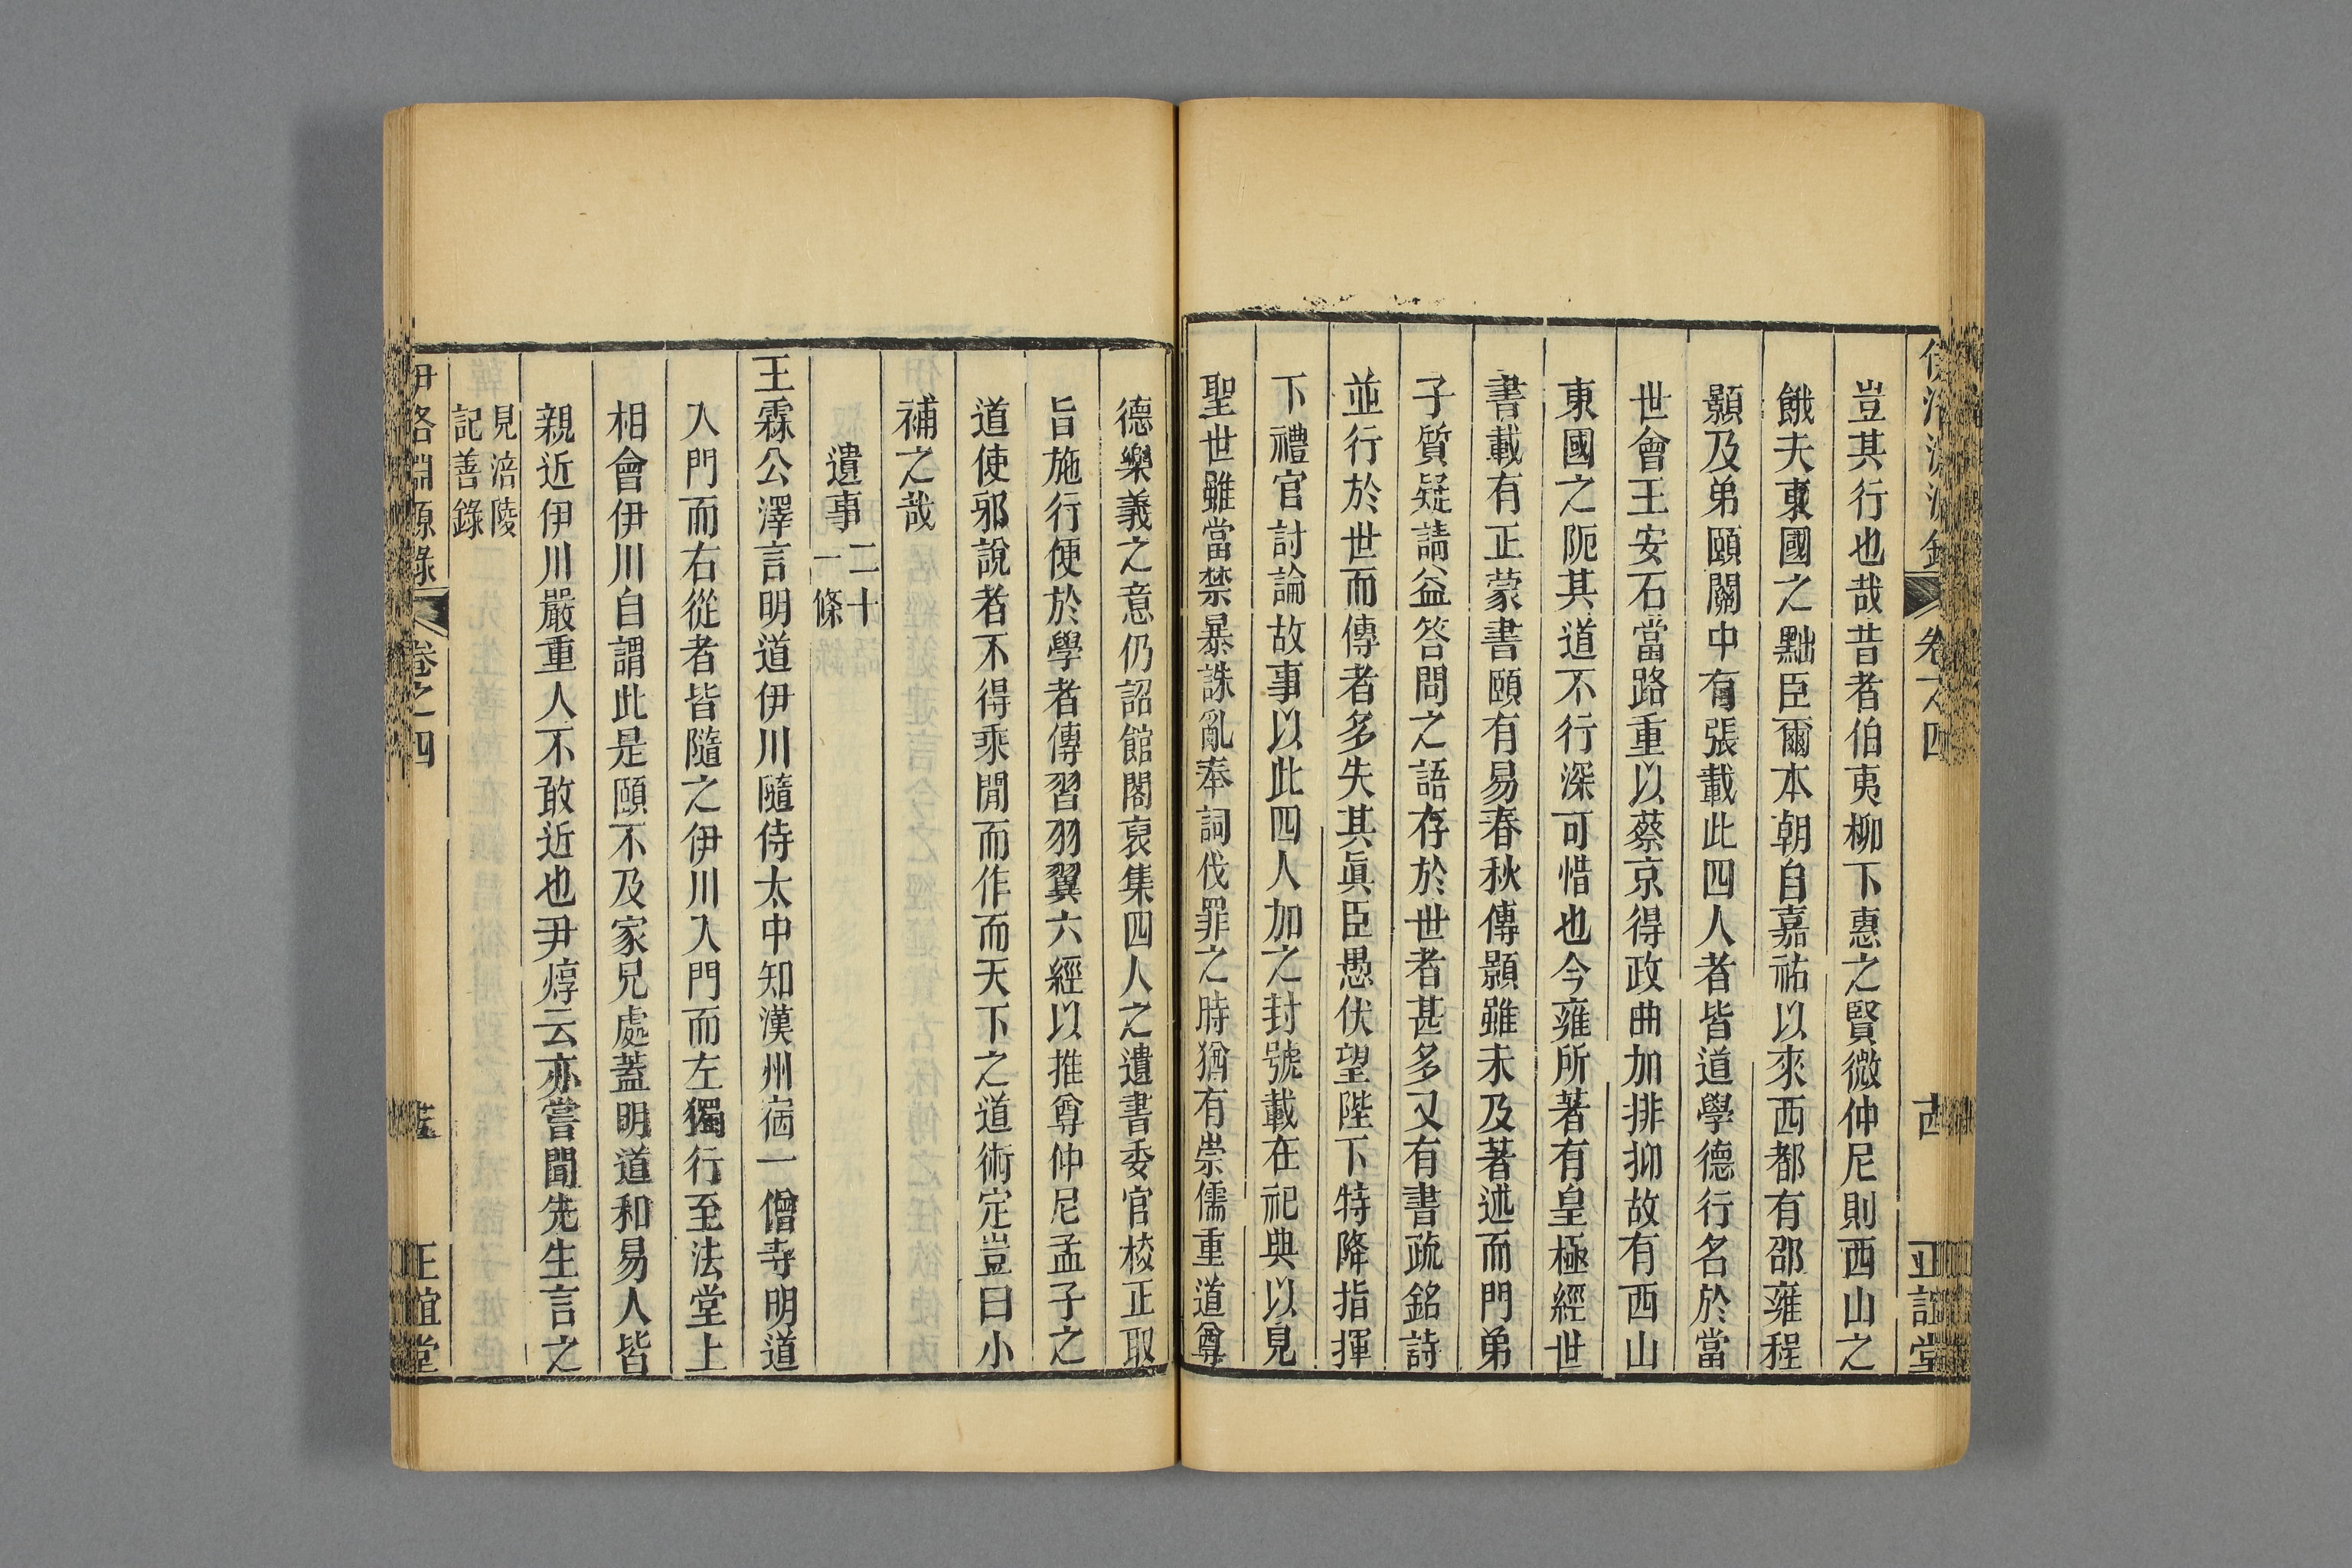 伊洛淵源錄 卷之四 十四 正誼堂
豈其行也哉昔者伯夷柳下惠之賢微仲尼則西山之
餓夫東國之黜臣爾本朝自嘉祐以來西都有邵雍程
顥及弟頤關中有張載此四人者皆道學德行名於當
世會王安石當路重以蔡京得政曲加排抑故有西山
東國之阨其道不行深可惜也今雍所著有皇極經世
書載有正蒙書頤有易春秋傳顥雖未及著述而門弟
子質疑請益答問之語存於世者甚多又有書疏銘詩
並行於世而傳者多失其眞臣愚伏望陛下特降指揮
下禮官討論故事以此四人加之封號載在祀典以見
聖世雖當禁暴誅亂奉詞伐罪之時猶有崇儒重道尊
德樂義之意仍詔館閣裒集四人之遺書委官校正取
旨施行便於學者傳習羽翼六經以推尊仲尼孟子之
道使邪說者不得乘閒而作而天下之道術定豈曰小
補之哉
遺事二十一條
王霖公澤言明道伊川隨侍太中知漢州宿一僧寺明道
入門而右從者皆隨之伊川入門而左獨行至法堂上
相會伊川自謂此是頤不及家兄處蓋明道和易人皆
親近伊川嚴重人不敢近也尹焞云亦嘗聞先生言之
見涪陵
記善錄
伊洛淵源錄 卷之四 正誼堂